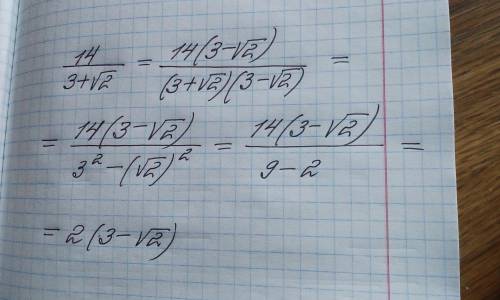 14/(3+√2) = 14(3-√2)/((3+√2)(3-√2)) =
= 14(3-√2)/(3²-(√2)²) = 14(3-√2)/(9-2) =
= 2(3-√2)